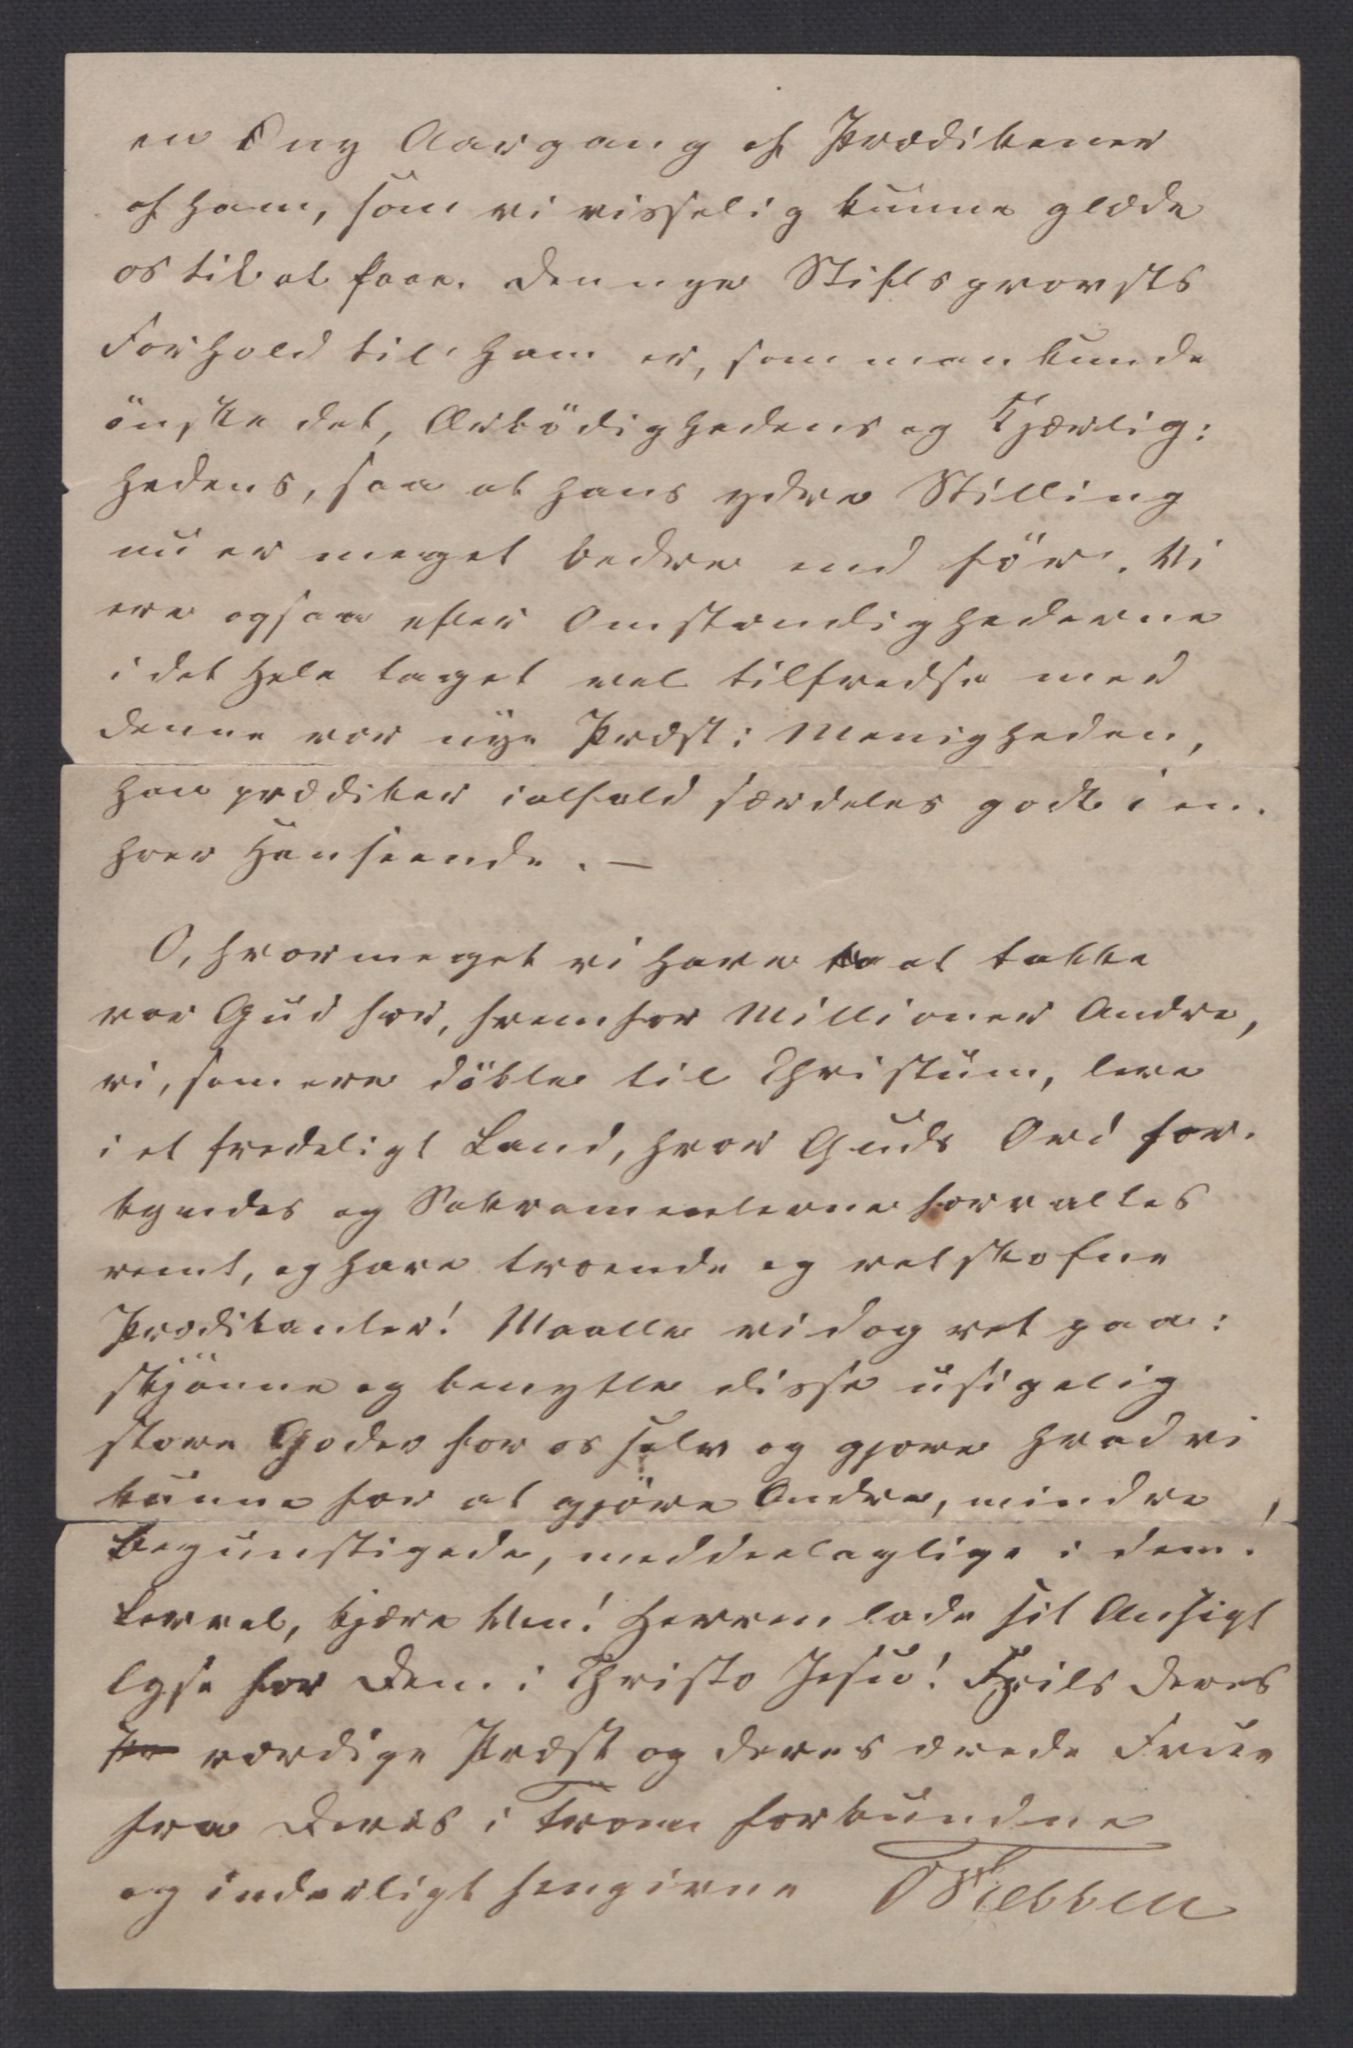 en ny Aargang af Prædikener
af ham, som vi visselig kunne glæde
os til at faae. Den nye Stiftsprovsts
Forhold til ham er, som man kunde
önske det, Ærbödighedens og Kjærlig:
hedens, saa at hans ydre Stilling
nu er meget bedre end för. Vi
ere ogsaa efter Omstændighederne
i det Hele taget vel tilfredse med
denne vor nye Præst i Menigheden,
han prædiker ialfald særdeles godt i en-
hver Henseende. —
O, hvormeget vi have at takke
vor Gud for, fremfor Millioner Andre,
vi, som ere döbte til Christum, leve
i et fredeligt Land, hvor Guds Ord for-
kyndes og Sakramenterne forvaltes
reent, og have troende og retskafne
Prædikanter! Maatte vi dog ret paa:
skjönne og benytte disse usigelig
store Goder for os selv og gjøre hvad vi
kunne for at gjöre Andre, mindre
Begunstigede, meddeelaglige i dem!
Levvel, kjære Ven! Herren lade sit Ansigt
lyse for Dem i Christo Jesu! Hils Deres
værdige Præst og Deres ærede Frue
fra Deres i Troen forbundne
og inderligt hengivne